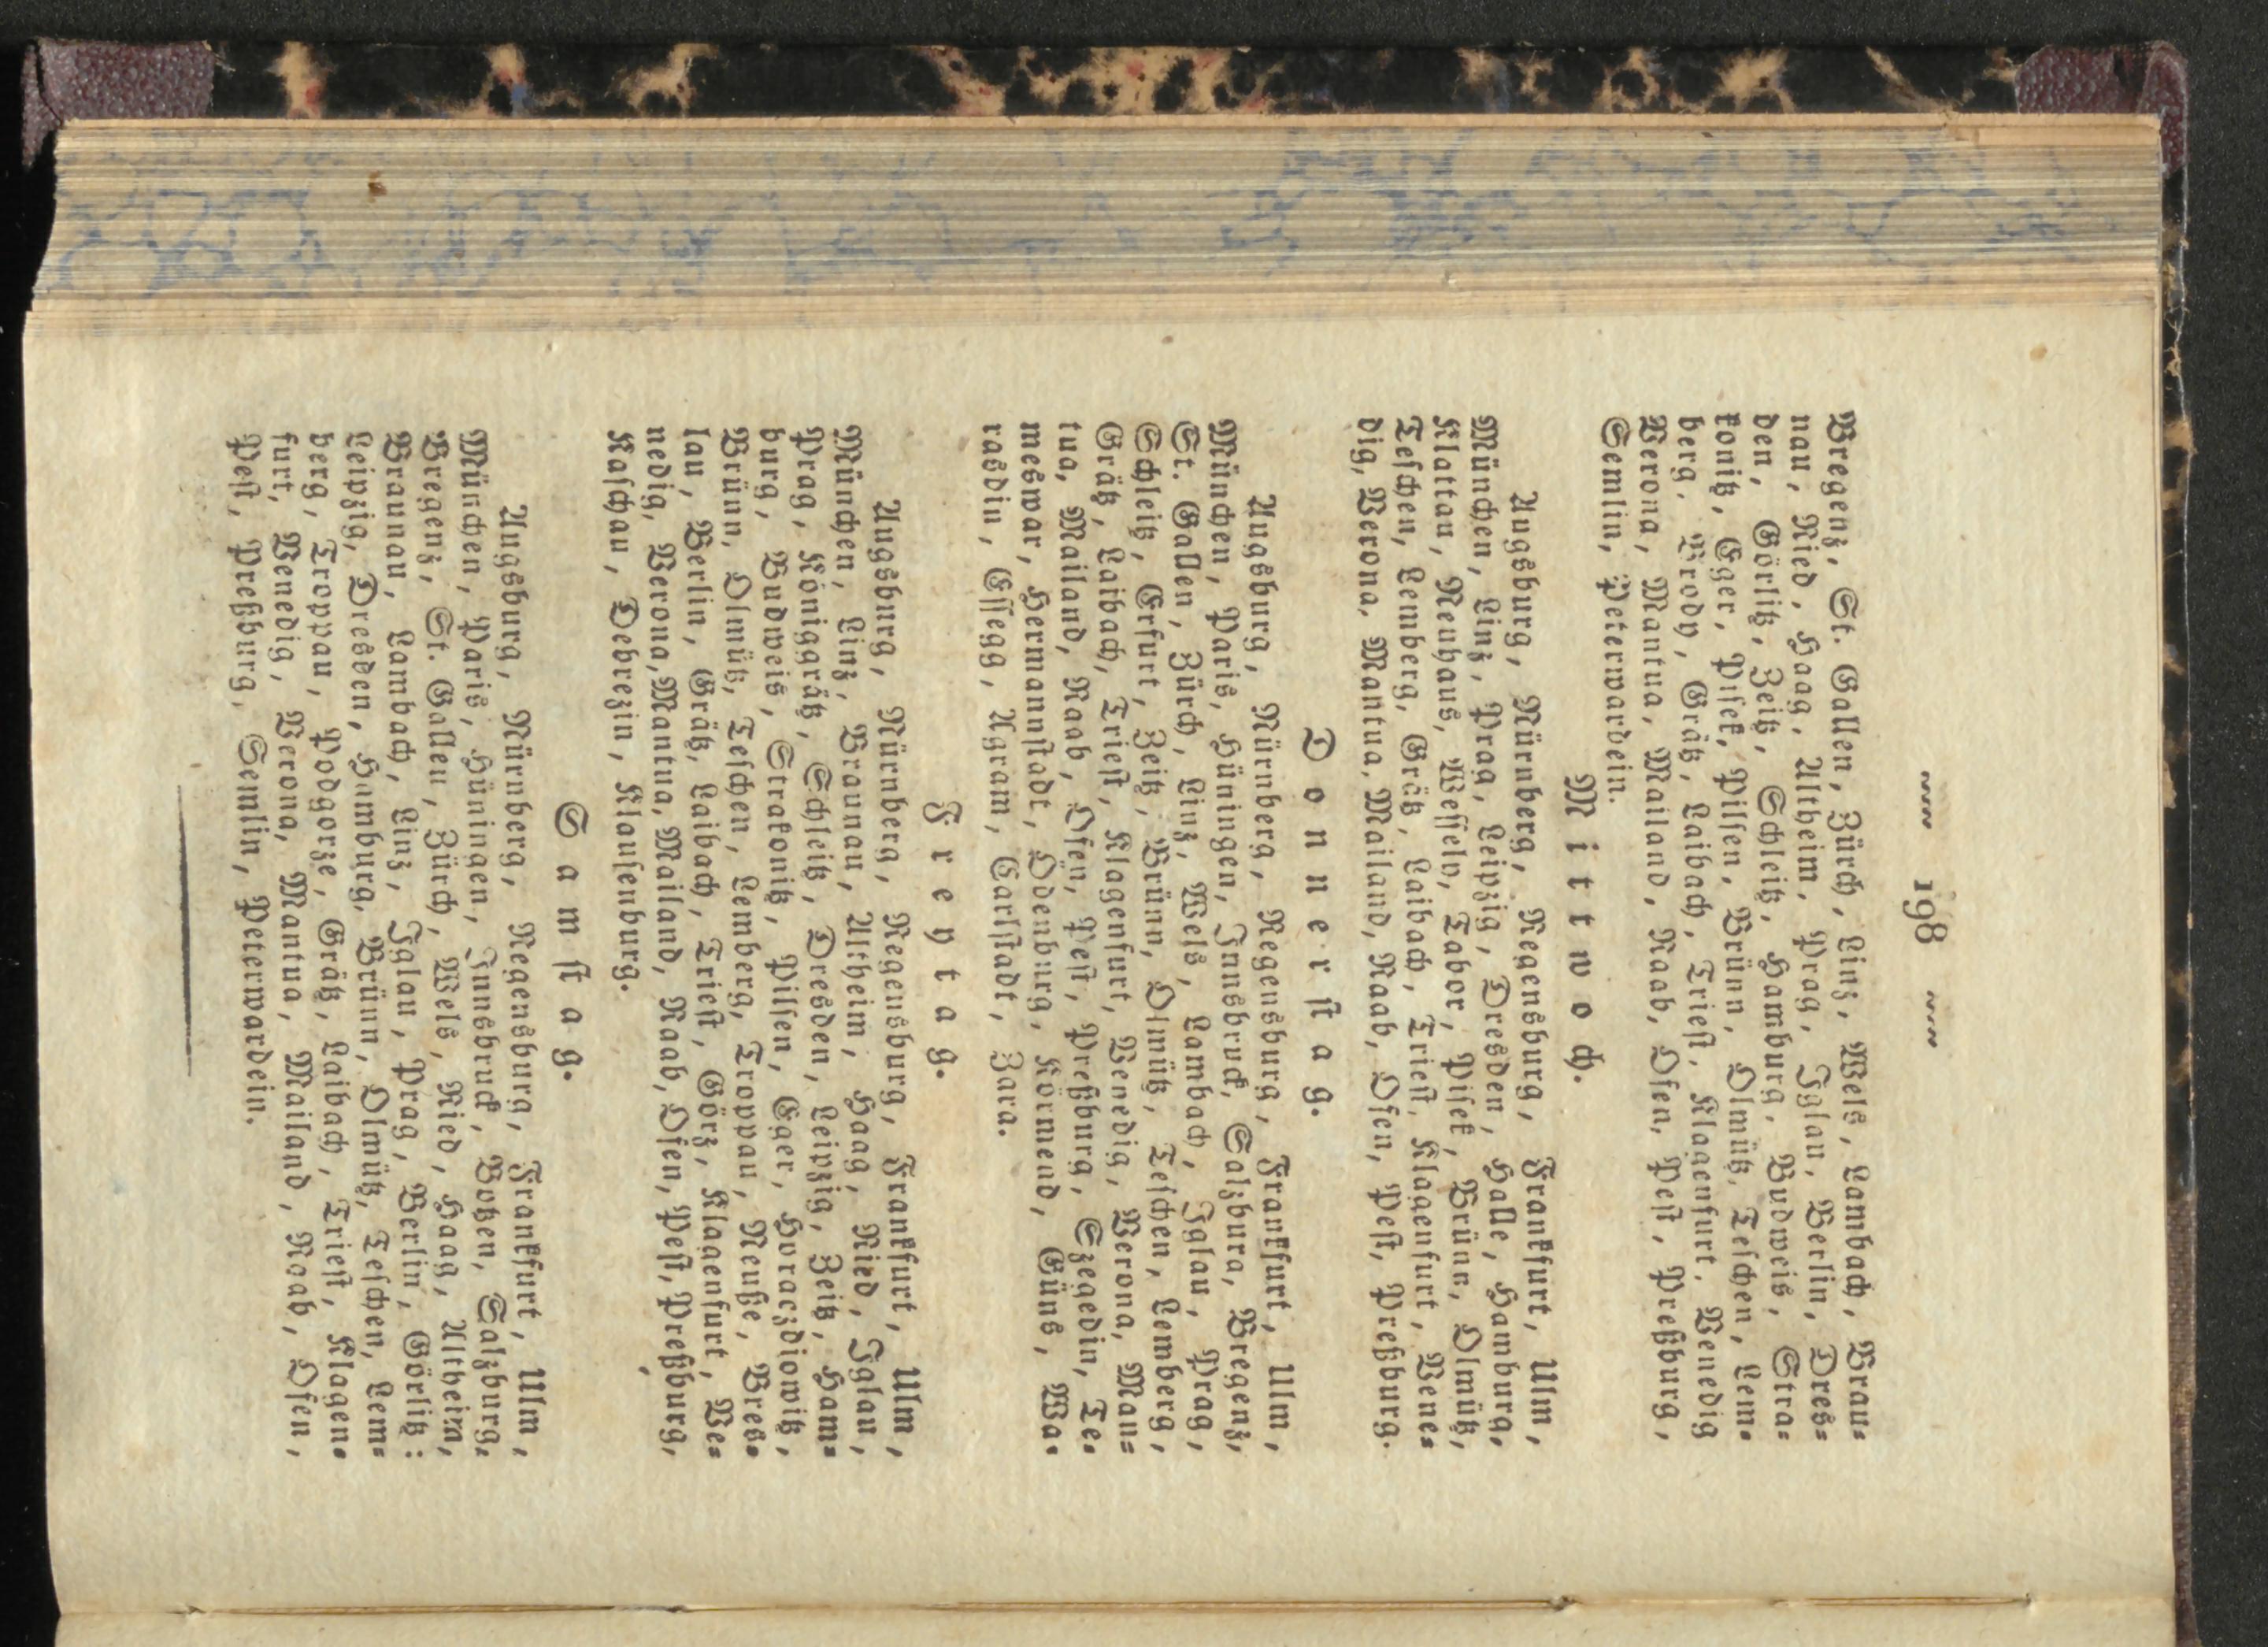 ~~~ 198 ~~~
Bregenz, St. Gallen, Zürch, Linz, Wels, Lambach, Brau=
nau, Ried, Haag, Altheim, Prag, Iglau, Berlin, Dres=
den, Görlitz, Zeitz, Schleitz, Hamburg, Budweis, Stra=
konitz, Eger, Pisek, Pilsen, Brünn, Olmütz, Teschen, Lem=
berg, Brody, Grätz, Laibach, Triest, Klagenfurt, Venedig
Verona, Mantua, Mailand, Raab, Ofen, Pest, Preßburg,
Semlin, Peterwardein.
Mittwoch.
Augsburg, Nürnberg, Regensburg, Frankfurt, Ulm,
München, Linz, Prag, Leipzig, Dresden, Halle, Hamburg,
Klattau, Neuhaus, Wessely, Tabor, Pisek, Brünn, Olmütz,
Teschen, Lemberg, Grätz, Laibach, Triest, Klagenfurt, Vene=
dig, Verona, Mantua, Mailand, Raab, Ofen, Pest, Preßburg.
Donnerstag.
Augsburg, Nürnberg, Regensburg, Frankfurt, Ulm,
München, Paris, Hüningen, Innsbruck, Salzburg, Bregenz,
St. Gallen, Zürch, Linz, Wels, Lambach, Iglau, Prag,
Schleitz, Erfurt, Zeitz, Brünn, Olmütz, Teschen, Lemberg,
Grätz, Laibach, Triest, Klagenfurt, Venedig, Verona, Man=
tua, Mailand, Raab, Ofen, Pest, Preßburg, Szegedin, Te=
meswar, Hermannstadt, Ödenburg, Körmend, Güns, Wa=
rasdin, Essegg, Agram, Carlstadt, Zara.
Freytag.
Augsburg, Nürnberg, Regensburg, Frankfurt, Ulm,
München, Linz, Braunau, Altheim, Haag, Ried, Iglau,
Prag, Königgrätz, Schleitz, Dresden, Leipzig, Zeitz, Ham=
burg, Budweis, Strakonitz, Pilsen, Eger, Horaczdiowitz,
Brünn, Olmütz, Teschen, Lemberg, Troppau, Neuße, Bres=
lau, Berlin, Grätz, Laibach, Triest, Görz, Klagenfurt, Ve=
nedig, Verona, Mantua, Mailand, Raab, Ofen, Pest, Preßburg,
Kaschau, Debrezin, Klausenburg.
Samstag.
Augsburg, Nürnberg, Regensburg, Frankfurt, Ulm,
München, Paris, Hüningen, Innsbruck, Botzen, Salzburg,
Bregenz, St. Gallen, Zürch, Wels, Ried, Haag, Altheim,
Braunau, Lambach, Linz, Iglau, Prag, Berlin, Görlitz:
Leipzig, Dresden, Hamburg, Brünn, Olmütz, Teschen, Lem=
berg, Troppau, Podgorze, Grätz, Laibach, Triest, Klagen=
furt, Venedig, Verona, Mantua, Mailand, Raab, Ofen,
Pest, Preßburg, Semlin, Peterwardein.